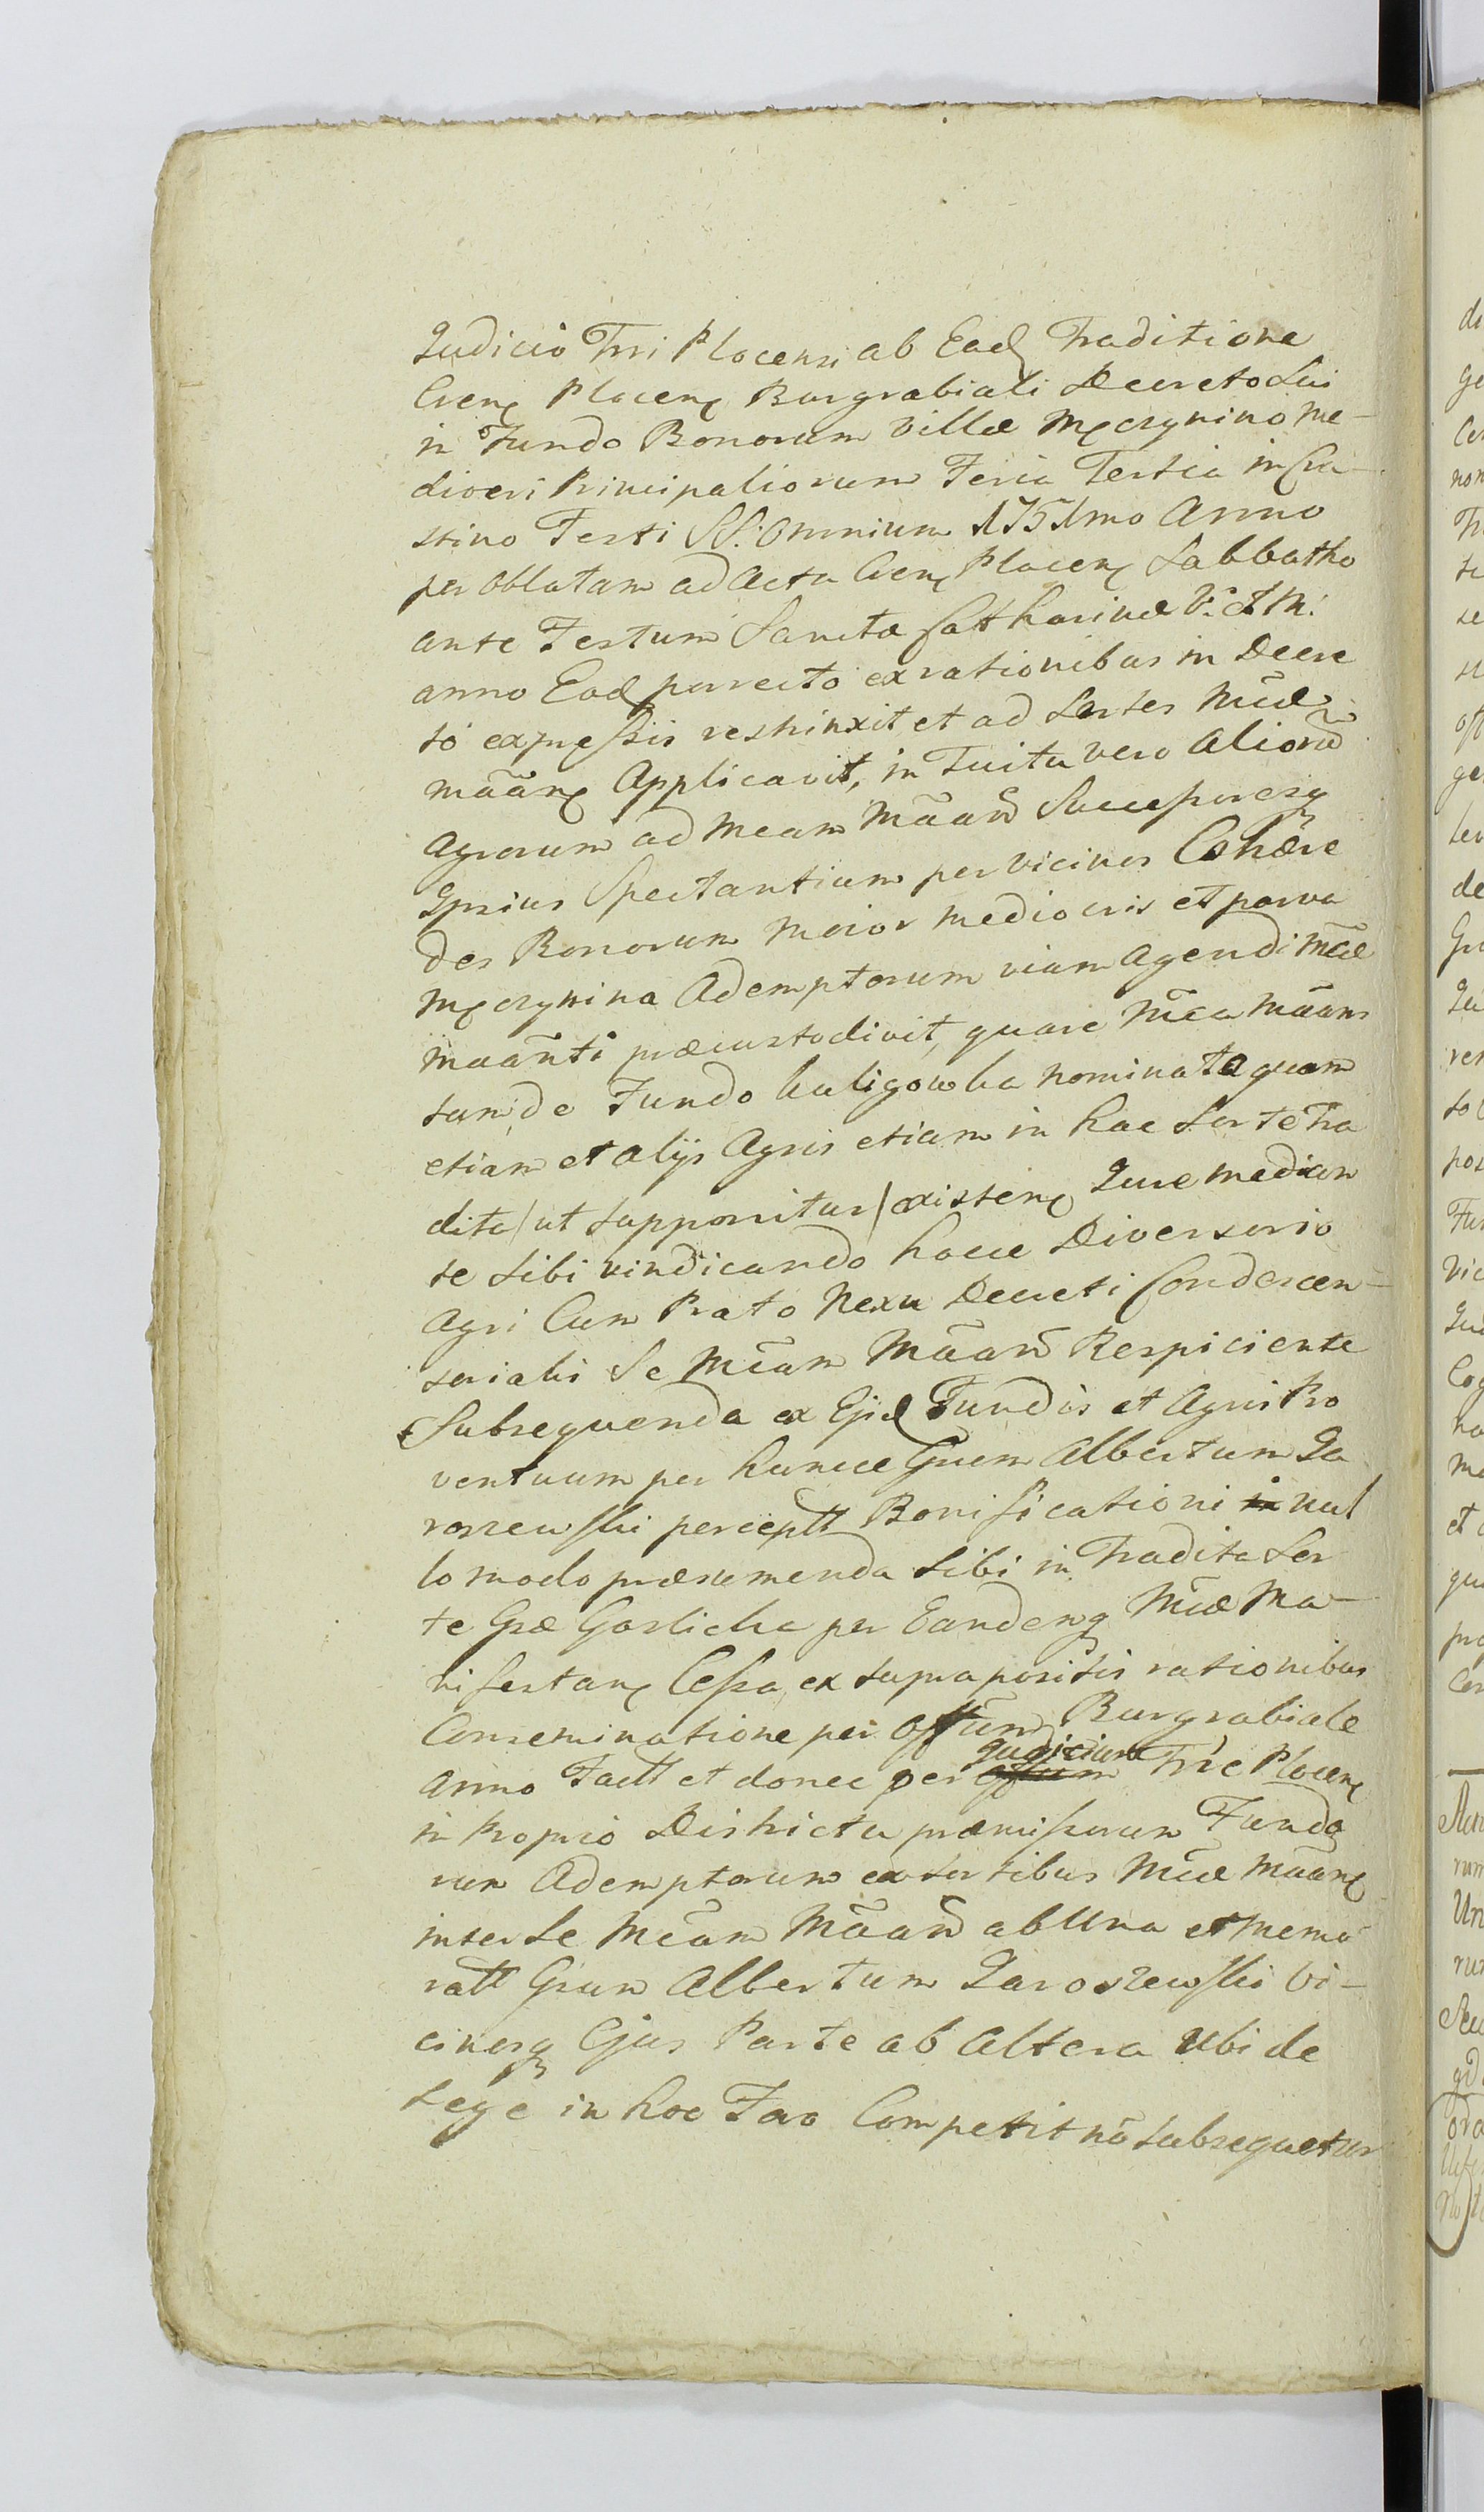 Judicio Trri Plocensi ab Ead Traditione
Cren Plocen Burgrabiali Decreto Sui
in Fundo Bonorum Villæ Męczynino me-
diveri Principaliorum Feria Tertia in Cra-
stino Festi SS. Omnium 1751mo Anno
per Oblatam ad Acta Cren Plocen Sabbatho
ante Festum Sanctæ Catharinæ V. et M.
anno Eod porrecto ex rationibus in Decre
to expressis restrinxit et ad Sortes Mcæ
Mãan Applicavit, in Tuitu vero Aliorũ
Agrorum ad Meam Mãañ Successoresq
Ipsius Spectantium per Vicinos Cohære
des Bonorum Maior Mediocris et parva
Męczynina Ademptorum viam Agendi Mcæ
Mãañti præcustodivit, quare Mca Mãans
tum de Fundo Kuligowka nominata quam
etiam et alijs Agris etiam in hac Sorte Tra
dita /ut supponitur/ existen Jure median
te Sibi vindicando hocce Diversorio
Agri Cum Prato Nexu Decreti Condescen-
sorialis Se Mcam Mãañ Respiciente
Subsequenda ex Ejsd Fundis et Agris Pro
ventuum per huncce Gnem Albertum Ja
roszewski perceptt Bonificationi nul
lo modo præsumenda Sibi in Tradita Sor
te Gsæ Garlicka per Eandemq Mcæ Ma-
nifestan Cessa, ex supra positis rationibus
Conseminatione per Offum Burgrabiale
Anno Factt et donec per Judicium Trre Plocen
in Proprio Districtu præmissorum Fundo
rum Ademptorum ex Sortibus Mcæ Mãan
inter Se Mcam Mãañ ab Una et memo
ratt Gnum Albertum Jaroszewski Vi-
cinosq Ejus Parte ab Altera Ubi de
Lege in hoc Foro Competit nõ subsequetur